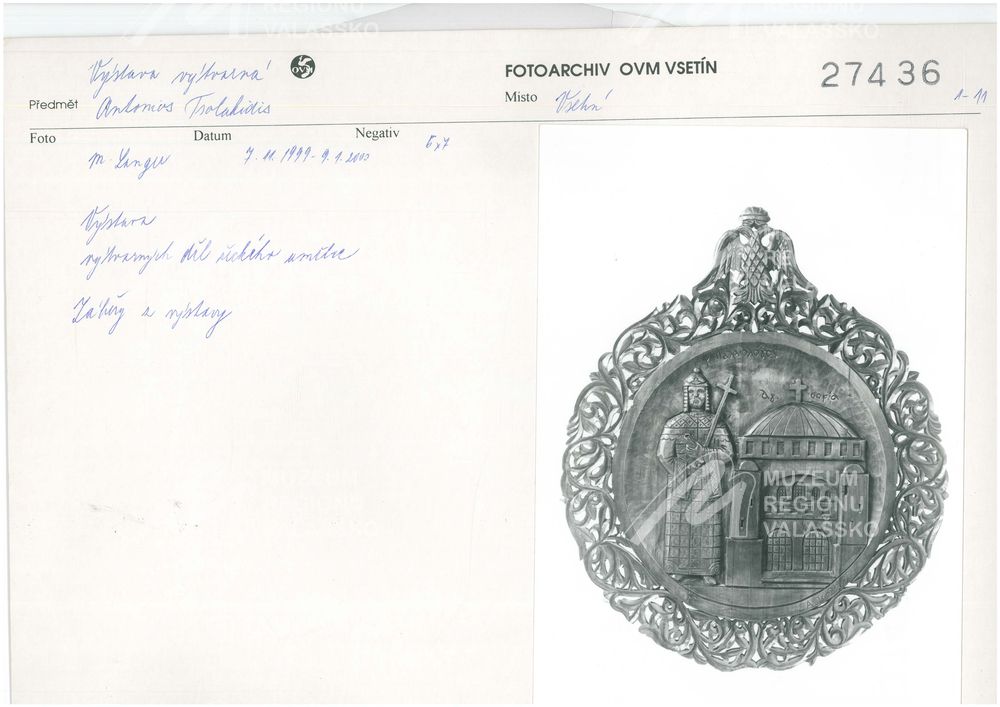 Výstava výtvarná
OVM
FOTOARCHIV OVM VSETÍN
27436
Předmět Antonios Tsolakidis
Místo Vsetín
1-11
Foto
Datum
Negativ
6x7
M. Langer
7.11.1999-9.1.2000
Výstava
výtvarných děl řeckého umělce
Záběry z výstavy
MUZEUM
REGIONU
VALAŠSKO